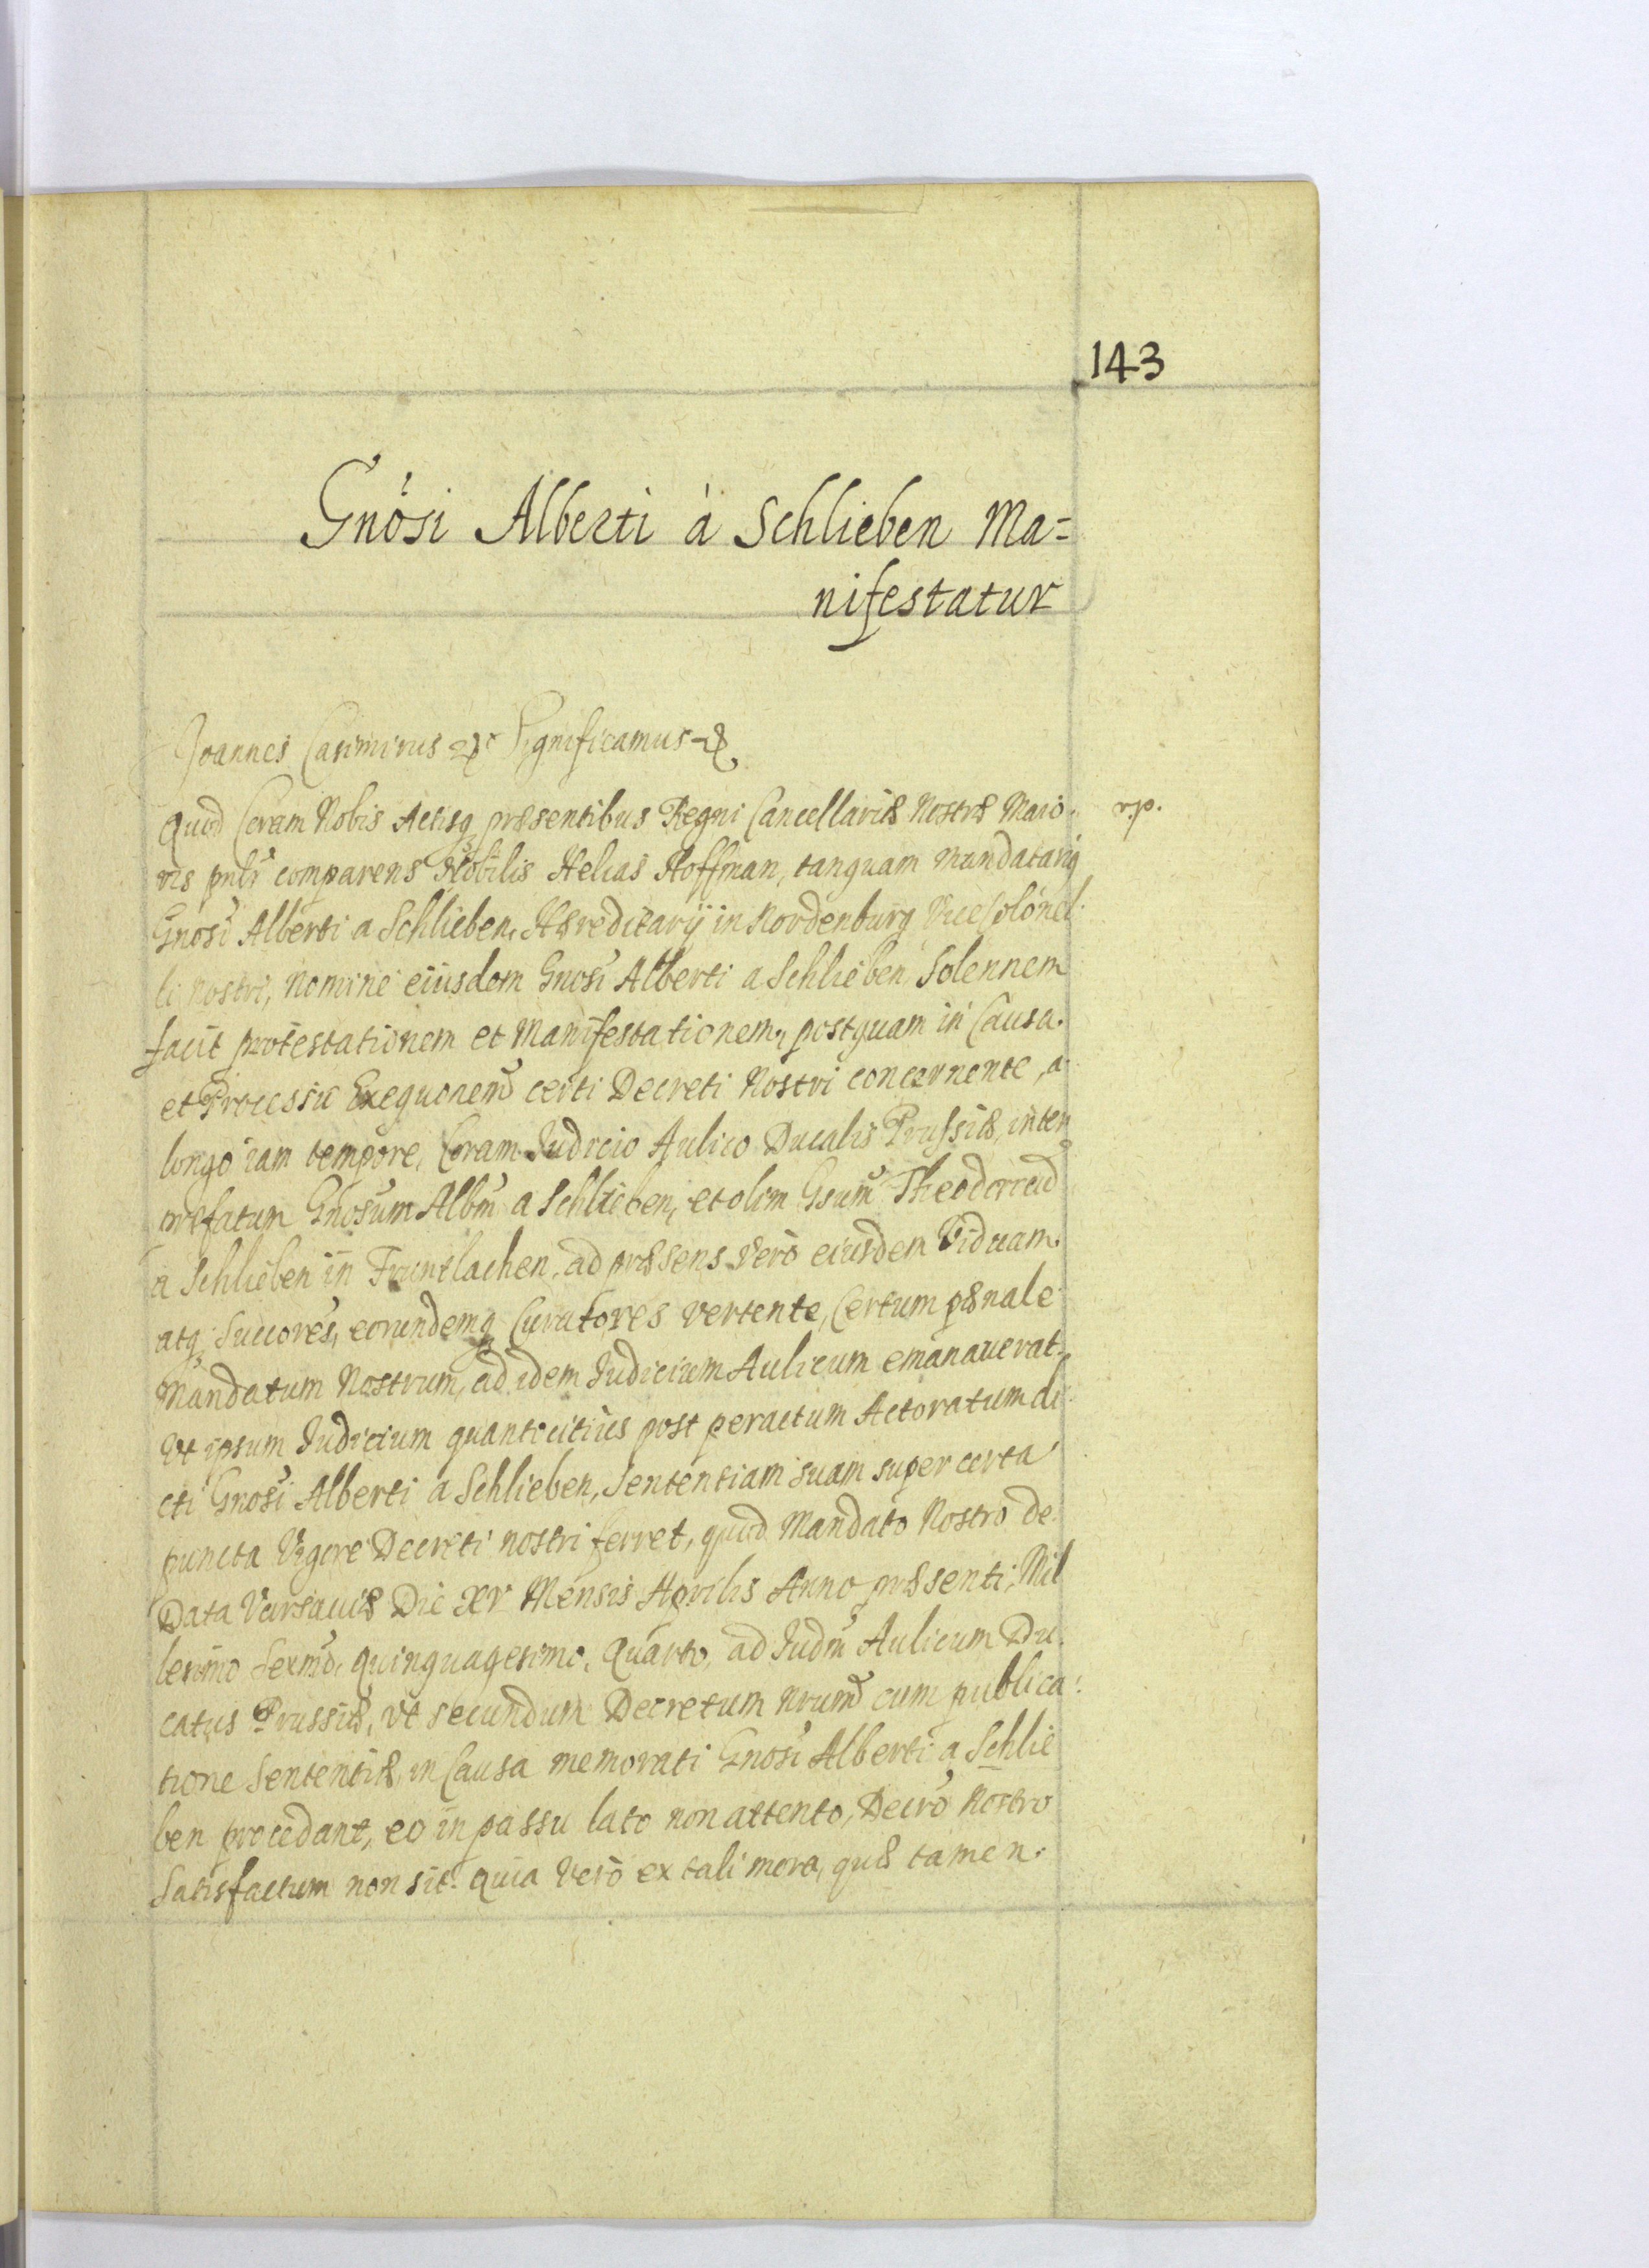 143
Gnósi Alberti à Schlieben Ma=
nifestatur
Joannes Casimirus & Significamus &
Quod Coram Nobis Actisq præsentibus Regni Cancellariæ Nostræ Maio. rp.
ris pnlr comparens Nobilis Helias Hoffman, tanquam mandatariq
Gnosi Alberti a Schlieben, Hæreditarij in Nordenburg Vice Colónel
li nostri, nomine eiusdem Gnosi Alberti a Schlieben Solennem
facit protestationem et Manifestationem, postquam in Causa.
et Processu Exequonem certi Decreti Nostri concernente, a
longo iam tempore, Coram Judicio Aulico Ducalis Prussiæ, inter
præfatum Gnosum Albm a Schlieben, et olim Gsum Theodoricum
a Schlieben in Truntlachen, ad præsens verò eiusdem Viduam.
atq; Succores, eorundemq Curatores vertente, Certum pænale
Mandatum Nostrum, ad idem Judicium Aulicum emanaverat.
Vt ipsum Judicium quantocitius post peractum Actoratum di
cti Gnosi Alberti a Schlieben, Sententiam suam super certa
puncta Vigore Decreti nostri ferret, quod Mandato Nostro de
Data Varsaviæ Die XV Mensis Aprilis Anno præsenti, Mil
lesimo Sexmo, quinquagesimo, Quarto, ad Judm Aulicum Du.
catus Prussiæ, Vt secundum Decretum nrum cum publica:
tione Sententiæ, in Causa memorati Gnosi Alberti a Schlie
ben procedant, eo in passu lato non attento, Decrò Nostro
Satisfactum non sit. Quia Verò ex tali mora, quæ tamen.